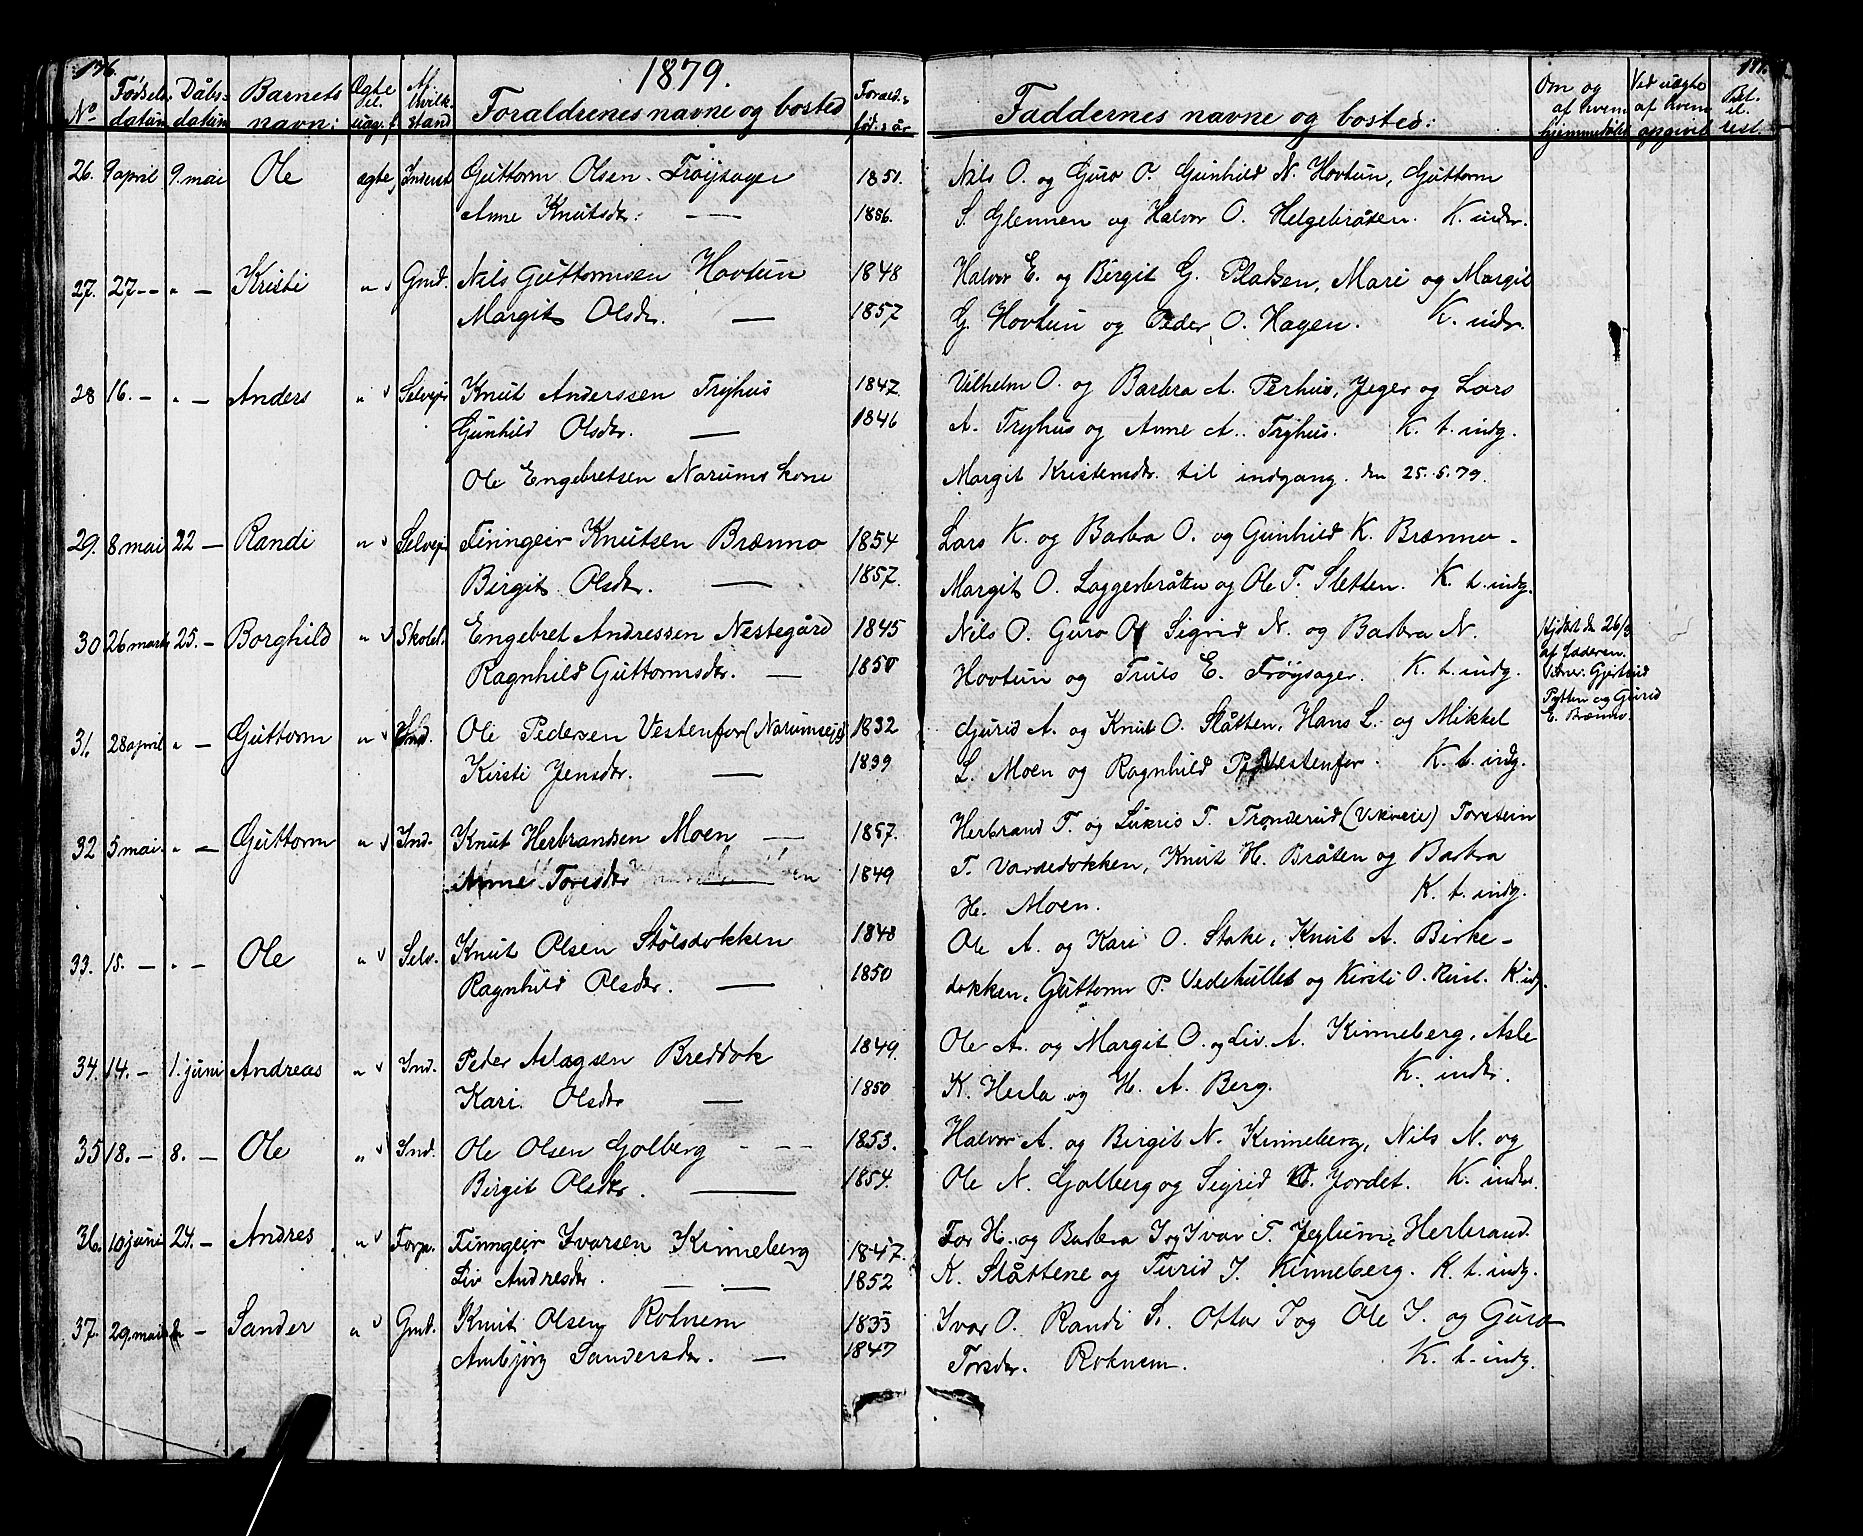 176.
1879.
No Fødsels- datum Dåbs- datum Barnets navn: Ægte el. uæg. f. Af hvilk. stand Forældrenes navne og bosted Foræld.s fød.s år Faddernes navne og bosted: Om og af hvem hjemmedøbt Ved uægte af hvem opgivet
26. 9 april 9. mai Ole ægte Inderst Guttorm Olsen Trøysager 1851. Nils O. og Guro O. Gunhild N. Hovtun, Guttorm
Anne Knutsdr. — 1856. S. Glennen og Halvor O. Helgebråten. K. inder.
27. 27 — „ — Kristi „ Gmd. Nils Guttormsen Hovtun 1848 Halvor E. og Birgit G. Pladsen, Mari og Margit
Margit Olsdr. — 1857 G. Hovtun og Peder O. Hagen. K. indr.
28 16. — „ — Anders „ Selvej. Knut Anderssen Tryhus 1847 Vilhelm O. og Barbra A. Perhus, Jeger og Lars
Gunhild Olsdr. — 1846 A. Tryhus og Anne A. Tryhus. K. t. indg.
Ole Engebretsen Narums kone Margit Kristensdr. til indgang den 25.5.79.
29. 8 mai 22 — Randi „ Selvej Finngeir Knutsen Brænno 1854 Lars K. og Barbra O. og Gunhild K. Brænno -
Birgit Olsdr. — 1857. Margit O. Laggerbråten og Ole T. Sletten. K. t. indg.
30 26 marts 25. — Borghild „ Skolel. Engebret Andressen Nestegård 1845 Nils O. Guro O. Sigrid N. og Barbra N. Hjdøbt den 26/3
Ragnhild Guttormsdr. — 1850 Hovtun og Truls E. Trøysager. K. t. indg. af faderen.
Gjertrud
Pytten og Guri
E. Brænno
31. 28 april „ — Guttorm „ Ind. Ole Pedersen Vestenfor (Narumseje) 1832 Gjurid A. og Knut O. Slåtten, Hans L. og Mikkel
Kirsti Jensdr. — 1839 L. Moen og Ragnhild P. Vestenfor. K. t. indg.
32 5 mai „ — Guttorm „ Ind. Knut Herbrandsen Moen — 1857. Herbrand T. og Lukris T. Trønderud (Vikseie) Torstein
Anne Toresdr — 1849 T. Vardedokken, Knut H. Bråten og Barbra
H. Moen. K. t. indg.
33. 15. — „ — Ole „ Selv. Knut Olsen Stølsdokken 1848 Ole A. og Kari O. Stake, Knut A. Birke-
Ragnhild Olsdr. — 1850 dokken, Guttorm P. Vedehullet og Kirsti O. Rust. K. idg.
34. 14. — 1. juni Andreas „ Ind. Peder Aslagsen Breddok 1849. Ole A. og Margit O. og Liv. A. Kinneberg, Asle
Kari Olsdr — 1850 K. Hesla og H. A. Berg. K. inder.
35 18. — 8. — Ole „ Ind. Ole Olsen Golberg — 1853. Halvor A. og Birgit N. Kinneberg, Nils N. og
Birgit Olsdr. — 1854. Ole N. Golberg og Sigrid O. Jordet. K. inder.
36. 10 juni 24. — Andres „ Forp. Finngeir Ivarsen Kinneberg 1847. Tor H. og Barbra I og Ivar T. Jeglum, Herbrand
Liv Andresdr. — 1852 K. Slåttene og Turid I. Kinneberg. K. t. indg.
37. 29. mai — Sander „ Gmd. Knut Olsen Roknem 1833 Ivar O. Randi S. Ottar I og Ole I. og Guro
Ambjørg Sandersdr. — 1847 Torsdr. Roknem. K. t. indg.